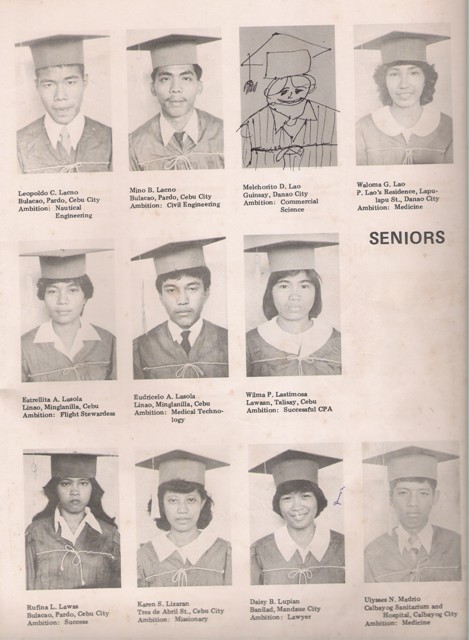 Leopoldo C. Lacno
Bulacao, Pardo, Cebu City
Ambition: Nautical
Engineering
Mino B. Lacno
Bulacao, Pardo, Cebu City
Ambition: Civil Engineering
Melchorito D. Lao
Guinsay, Danao City
Ambition: Commercial
Science
Waloma G. Lao
P. Lao's Residence, Lapu-
lapu St., Danao City
Ambition: Medicine
SENIORS
Estrellita A. Lasola
Linao, Minglanilla, Cebu
Ambition: Flight Stewardess
Eudricelo A. Lasola
Linao, Minglanilla, Cebu
Ambition: Medical Techno-
logy
Wilma P. Lastimosa
Lawaan, Talisay, Cebu
Ambition: Successful CPA
Rufina L. Lawas
Bulacao, Pardo, Cebu City
Ambition: Success
Karen S. Lizaran
Tres de Abril St., Cebu City
Ambition: Missionary
Daisy B. Lupian
Banilad, Mandaue City
Ambition: Lawyer
Ulysses N. Madrio
Calbayog Sanitarium and
Hospital, Calbayog City
Ambition: Medicine